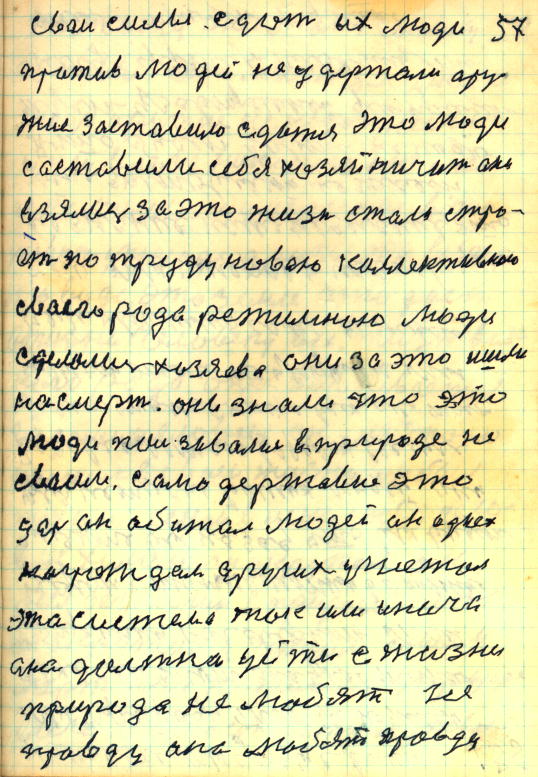 сваи силы. сдют их люди 57
против людей не удержали ару-
жие заставило сдатся это люди
саставили себя хозяйничит они
взялись за это жизн стали стро-
ит по труду новаю каллективнаю
сваего рода режимнаю люди
сделались хозяева они за это ишли
на смерт. они знали что это
люди пользавали в природе не
сваим. само державие это
цар он абитал людей он аднех
награждал других угнетал
эта система так или иначе
она должна уйти с жизни
природа не любят не
правду она любят правду